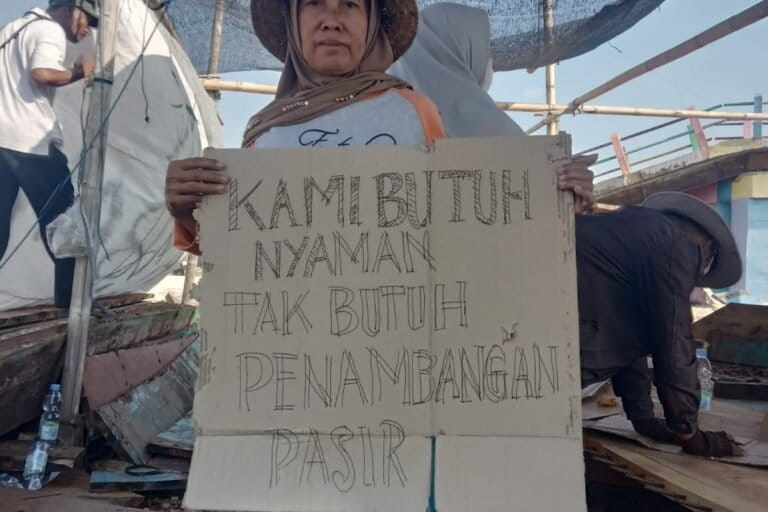 KAMI BUTUH
NYAMAN
TAK BUTUH
PENAMBANGAN
PASIR